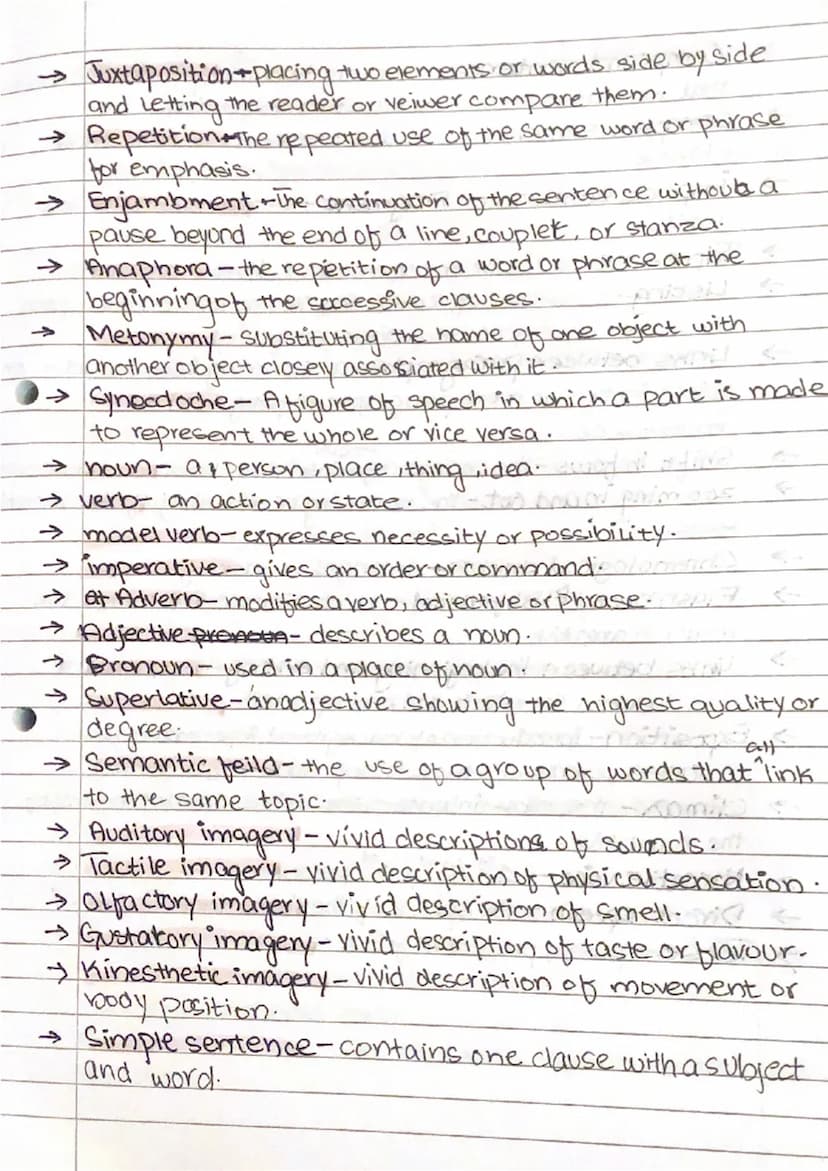 → Juxtaposition - placing two elements or words side by side
and letting the reader or veiwer compare them.
→ Repetition - The repeated use of the same word or phrase
for emphasis.
→ Enjambment - The continuation of the sentence without a
pause beyond the end of a line, couplet, or stanza.
→ Anaphora - the repetition of a word or phrase at the
beginning of the successive clauses.
→ Metonymy - substituting the name of one object with
another object closely assosiated with it.
→ Synecdoche - A figure of speech in which a part is made
to represent the whole or vice versa.
→ noun - a person, place, thing, idea.
→ verb - an action or state.
→ model verb - expresses necessity or possibility.
→ imperative - gives an order or command.
→ Adverb - modifies a verb, adjective or phrase.
→ Adjective pronoun - describes a noun.
→ Pronoun - used in a place of noun.
→ Superlative - an adjective showing the highest quality or
degree.
→ Semantic feild - the use of a group of words that all link
to the same topic.
→ Auditory imagery - vivid descriptions of sounds.
→ Tactile imagery - vivid description of physical sensation.
→ Olfactory imagery - vivid description of smell.
→ Gustatory imagery - vivid description of taste or flavour.
→ Kinesthetic imagery - vivid description of movement or
body position.
→ Simple sentence - contains one clause with a subject
and word.